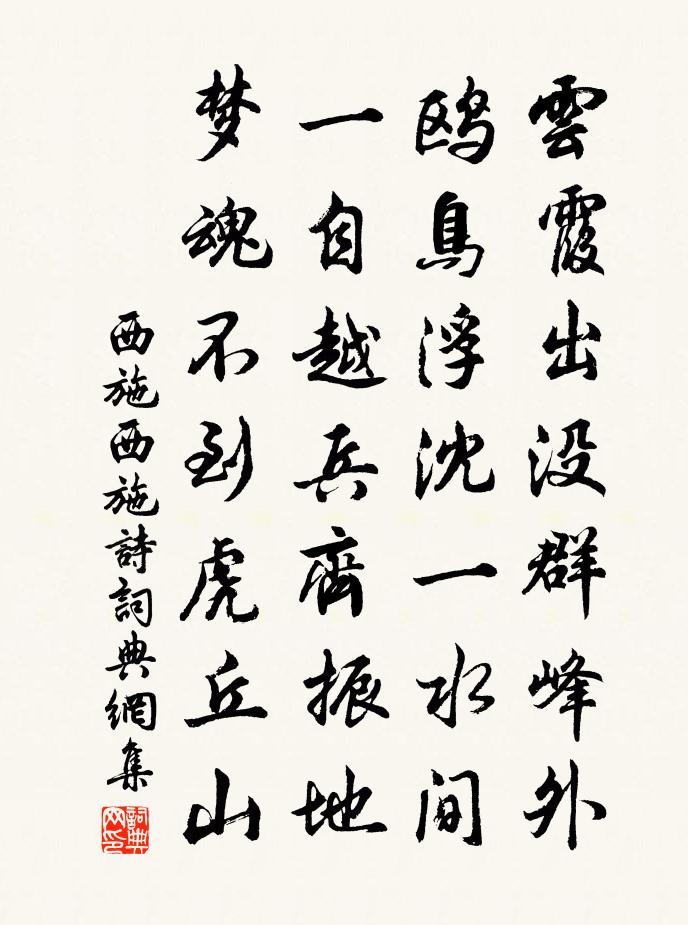 雲霞出没群峰外
鸥鳥浮沈一水间
一自越兵齊振地
梦魂不到虎丘山
西施西施詩詞典網集
詞典网印